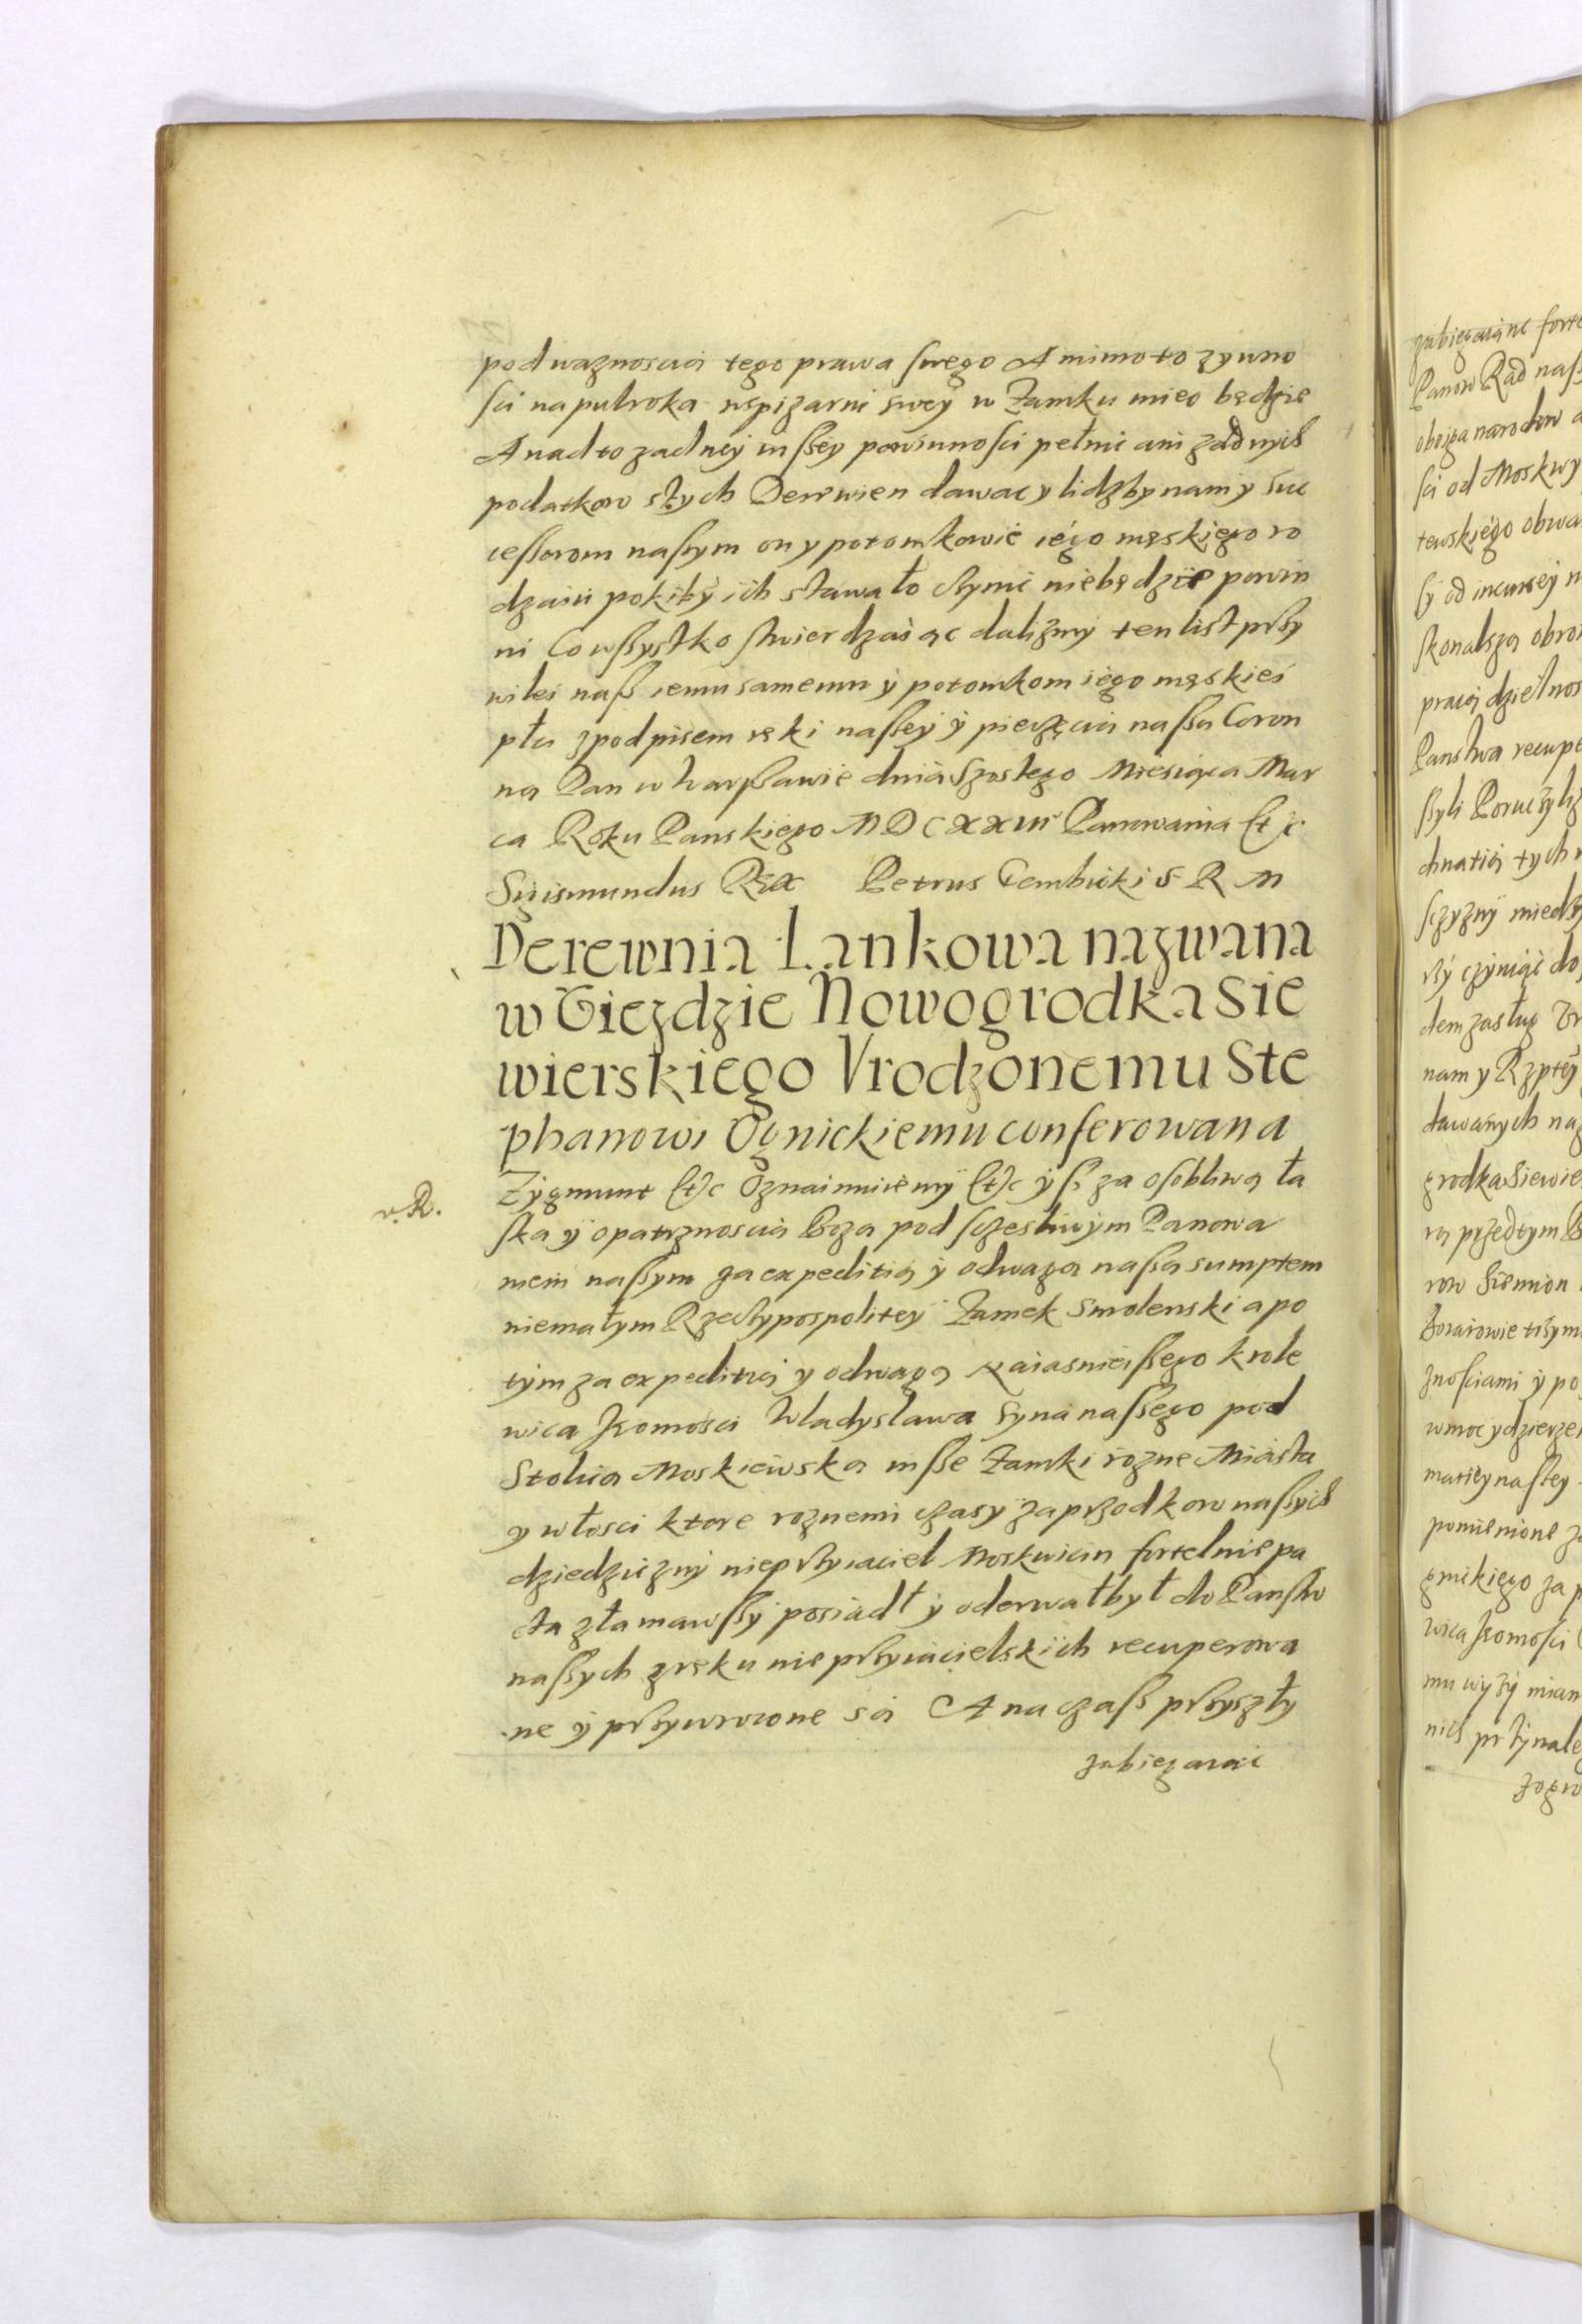 podwaznoscią tego prawa swego A mimo to zywno
sci na pulroka wspizarni swey w Zamku miec będzie
A nad to zadney inszey powinnosci pełnic ani zadnych
podatkow stych Derewien dawac y lidzby nam y suc
cessorom naszym on y potomkowie iego męskiego ro
dzaiu pokiby ich stawało czynic niebędzie powin
ni Co wszystko stwierdzaiąc dalizmy ten list przy
wilei nasz iemu samemu y potomkom iego męskiei
płci zpodpisem ręki naszey y pieczęcią naszą Coron
ną Dan w Warszawie dnia Szostego Miesiąca Mar
ca Roku Panskiego MDCXXIII Panowania etc
Sigismundus Rex Petrus Gembicki S R M
Derewnia Lankowa nazwana
w Uiezdzie Nowogrodka Sie
wierskiego Vrodzonemu Ste
phanowi Ognickiemu conferowana
v. R.
Zygmunt etc Oznaimuiemy etc ysz za osobliwą ła
ską y opatrznoscią Bozą pod sczesliwym Panowa
niem naszym za expeditią y odwagą naszą sumptem
niemałym Rzeczypospolitey Zamek Smolenski a po
tym za expeditią y odwagą Naiasnieiszego Krole
wica Jeomosci Wladysława Syna naszego pod
Stolicą Moskiewską insze Zamki rozne Miasta
y włosci ktore roznemi czasy za przodkow naszych
dziedziczny nieprzyiaciel Moskwicin fortelnie pa
cta złamawszy posiadł y oderwał był do Panstw
naszych zręku nieprzyiacielskich recuperowa
ne y przywrocone są A na czasz przyszły
zabiegaiąc
zabiegaiąc forte
Panow Rad nas
oboyga narodow a
sci od Moskwy
tewskiego obwa
sy od incursey n
skonalszą obro
pracą dzielnos
Panstwa recupe
szyli Poruczyliz
dinatią tych
sczyzny miedzy
rzy czyniąc do
dem zasług
nam y Rzptey
dawanych na
grodka Siewie
rą przedtym B
row Siemion
Boiarowie trzym
znosciami y po
w moc y dzierze
matiey naszey
pomienione za
gnickiego za p
wica Jeomosci
mu wyzy mian
nich przynale